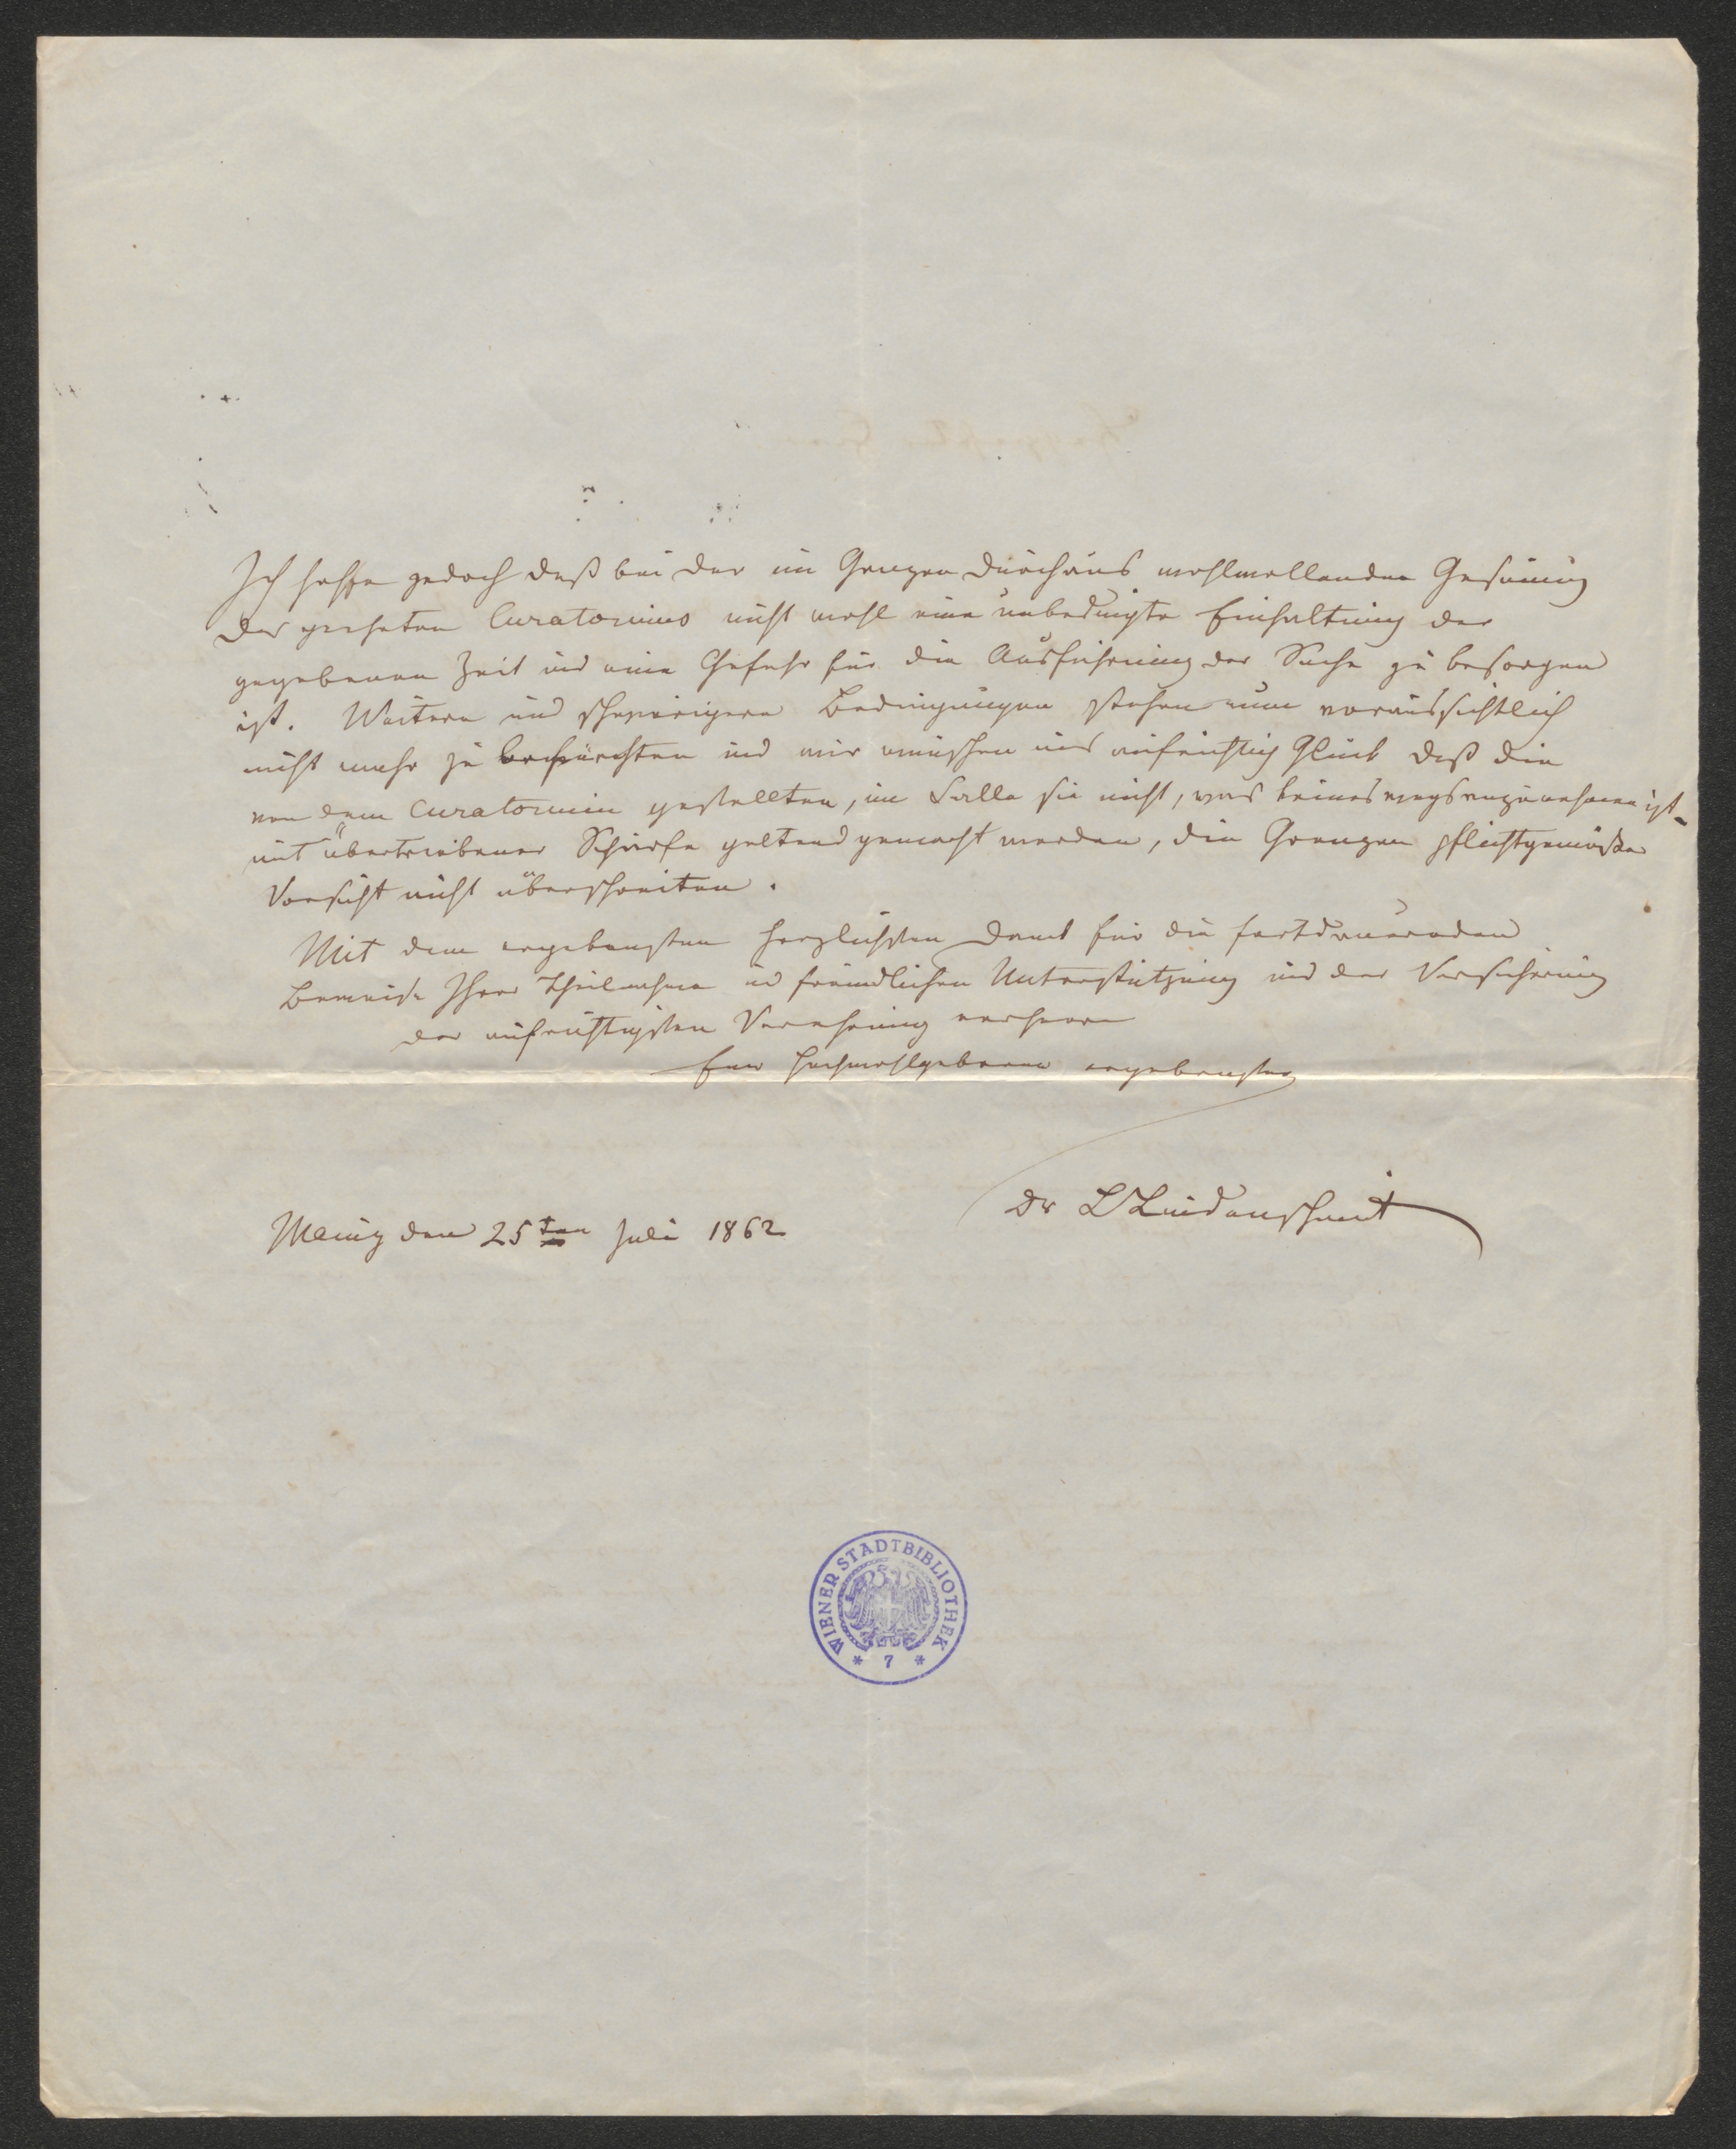 Ich hoffe jedoch daß bei der im Ganzen durchaus wohlwollenden Gesinnung
des geehrten Curatoriums nicht wohl eine unbedingte Einhaltung der
gegebenen Zeit und eine Gefahr für die Ausführung der Sache zu besorgen
ist. Weitere und schwierigere Bedingungen stehen nun voraussichtlich
nicht mehr zu befürchten und wir wünschen uns aufrichtig Glück daß die
von dem Curatorium gestellten, im Falle sie nicht, was keineswegs anzunehmen ist
mit übertriebener Schärfe geltend gemacht werden, die Grenzen pflichtgemäßer
Vorsicht nicht überschreiten.
Mit dem ergebensten herzlichsten Dank für die fortdauernden
Beweise Ihrer Theilnahme u freundlichen Unterstützung und der Versicherung
der aufrichtigsten Verehrung verharre
Euer Hochwohlgeboren ergebenster
Dr L Lindenschmit
Mainz den 25ten Juli 1862
WIENER STADTBIBLIOTHEK
* 7 *